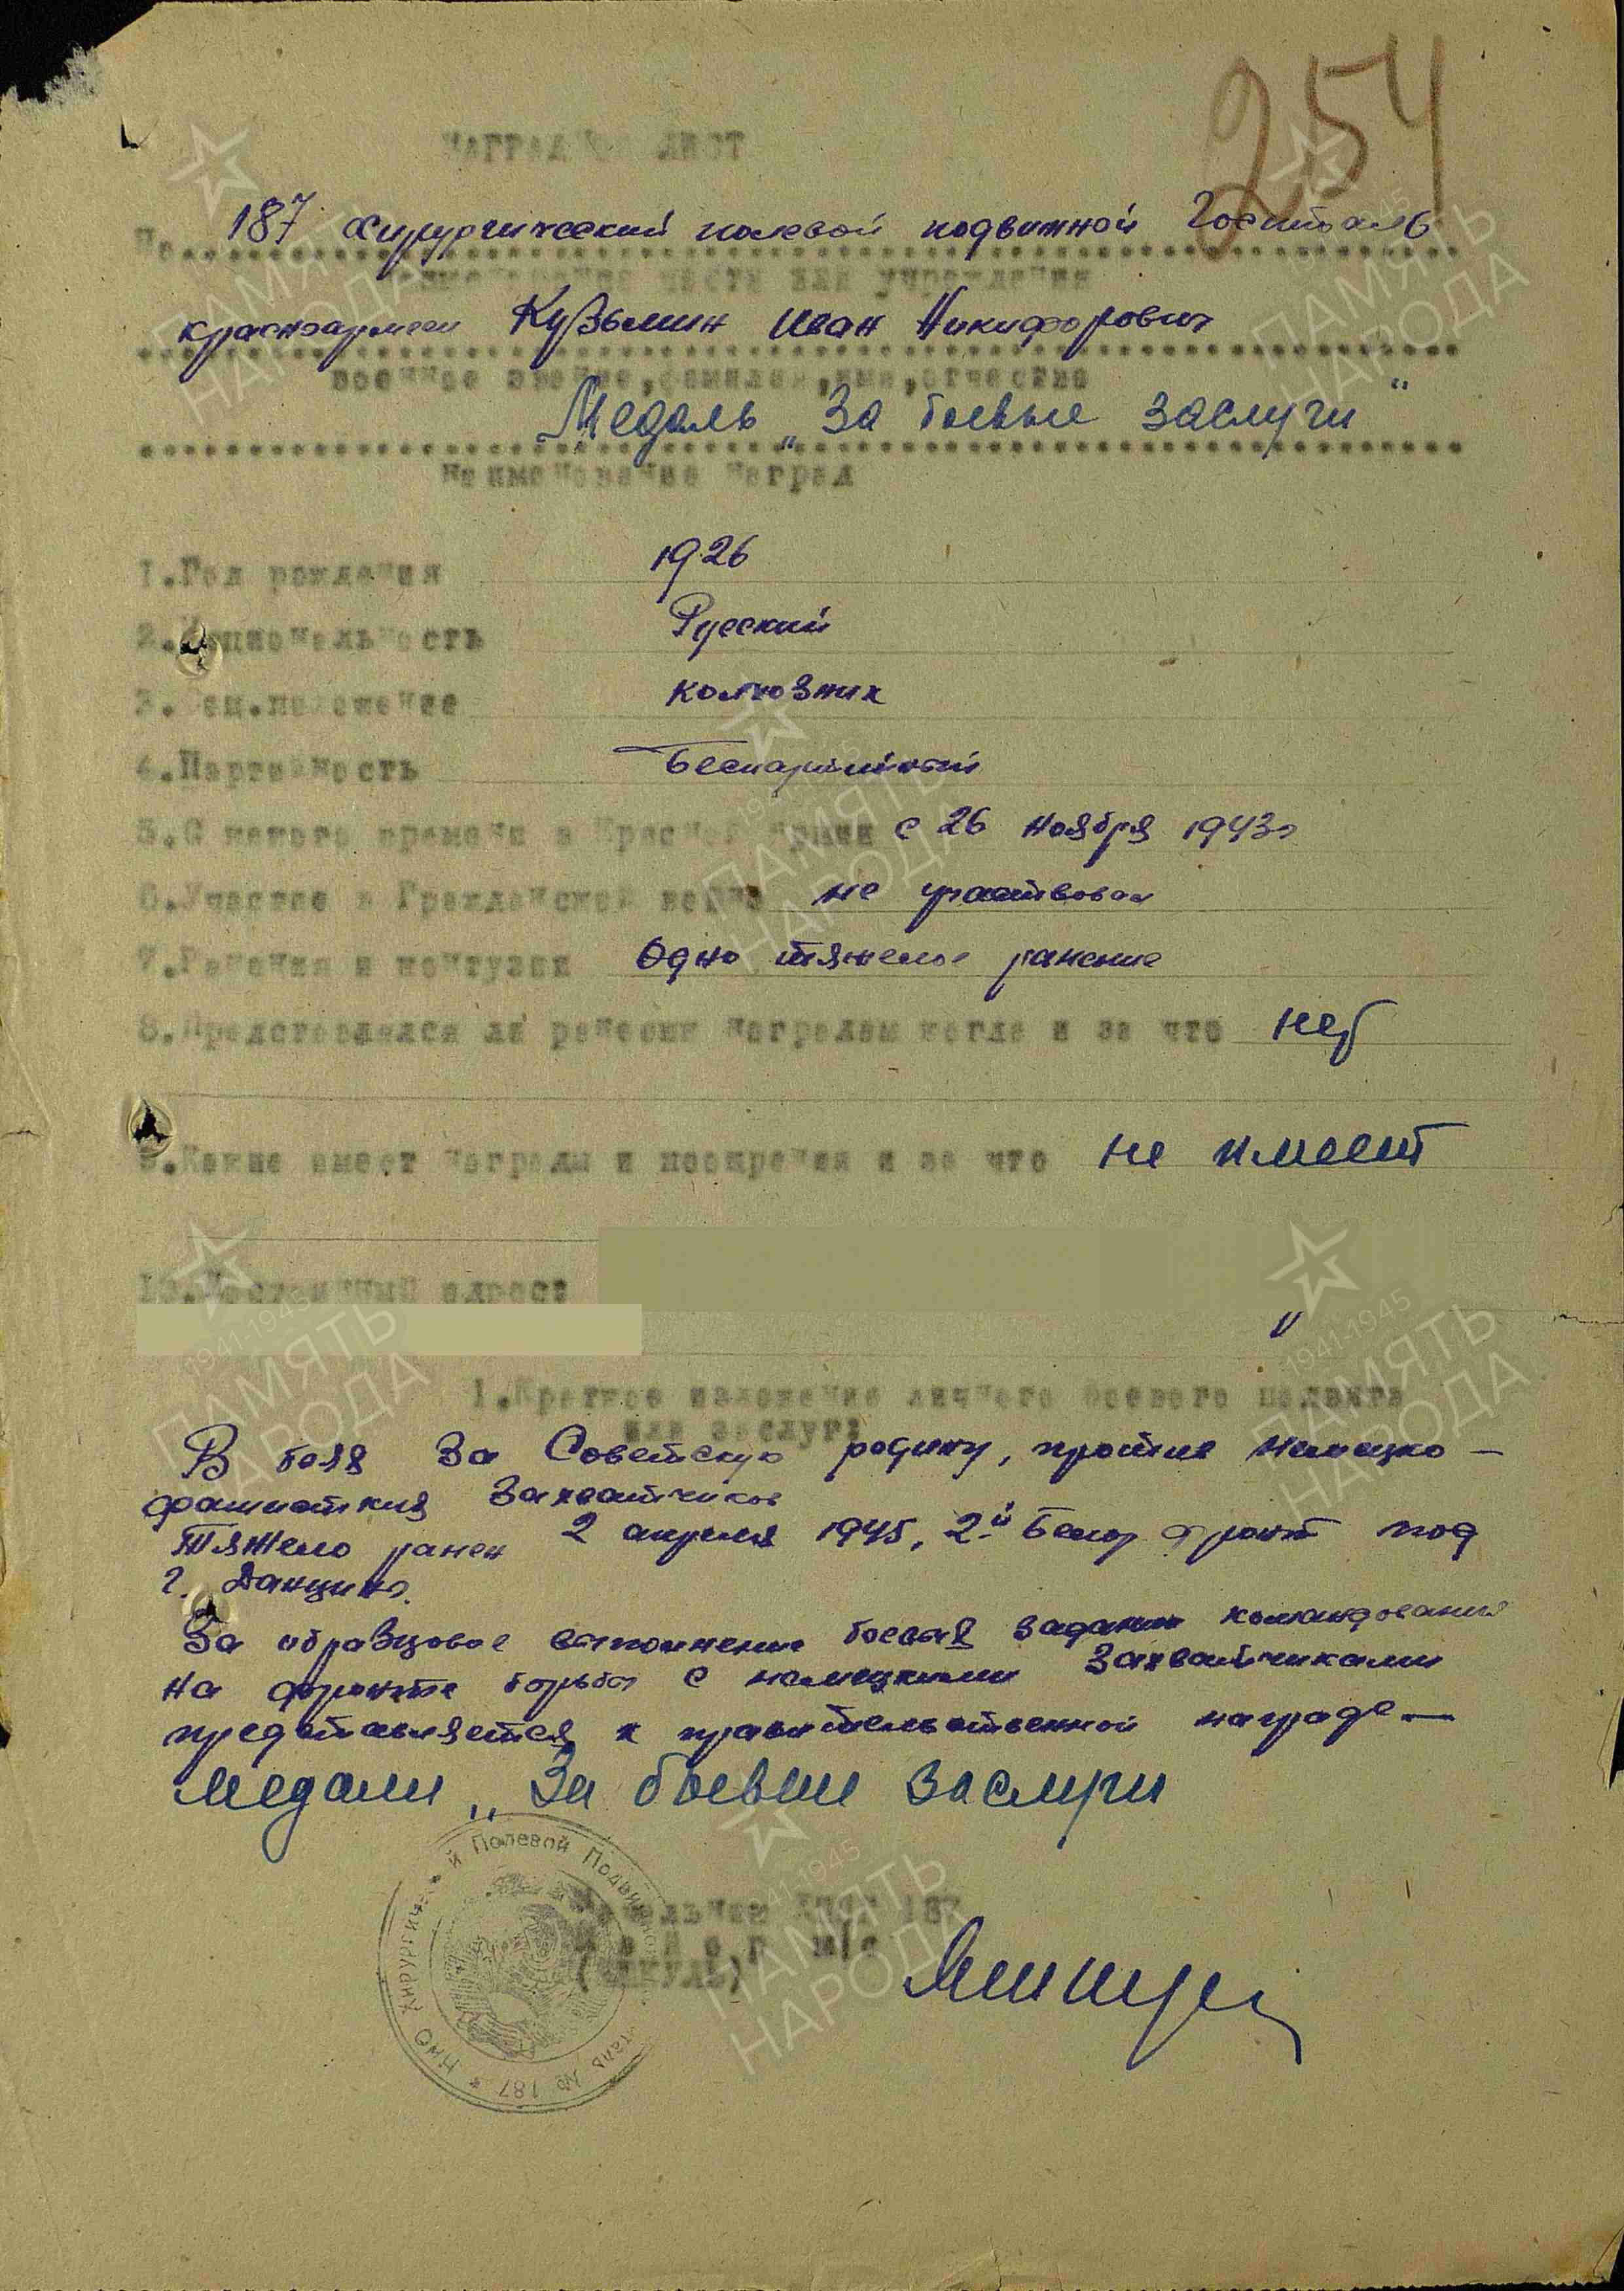 254
НАГРАДНОЙ ЛИСТ
187 хирургический полевой подвижной Госпиталь
наименование части или учреждения
красноармеец Кузьмин Иван Никифорович
военное звание, фамилия, имя, отчество
Медаль „За боевые заслуги"
Наименование наград
1.Год рождения 1926
2.Национальность Русский
3.Соц.положение колхозник
4.Партийность Беспартийный
5.С какого времени в Красной Армии с 26 ноября 1943г
6.Участие в Гражданской войне не участвовал
7.Ранения и контузии Одно тяжелое ранение
8.Представлялся ли ранее к наградам когда и за что нет
9.Какие имеет награды и поощрения и за что не имеет
10.Постоянный адрес:
1.Краткое изложение личного боевого подвига
или заслуг:
В боях За Советскую родину, против немецко-
фашистких Захватчиков
Тяжело ранен 2 апреля 1945, 2й Белор фронт под
г. Данциг.
За образцовое выполнение боевых задании командования
на фронте борьбы с немецкими Захватчиками
представляется к правительственной награде —
медали „За боевые заслуги
Начальник ХППГ 187
Майор м/с
НКО Хирургический Полевой Подвижной Госпиталь № 187
ПАМЯТЬ НАРОДА
1941-1945